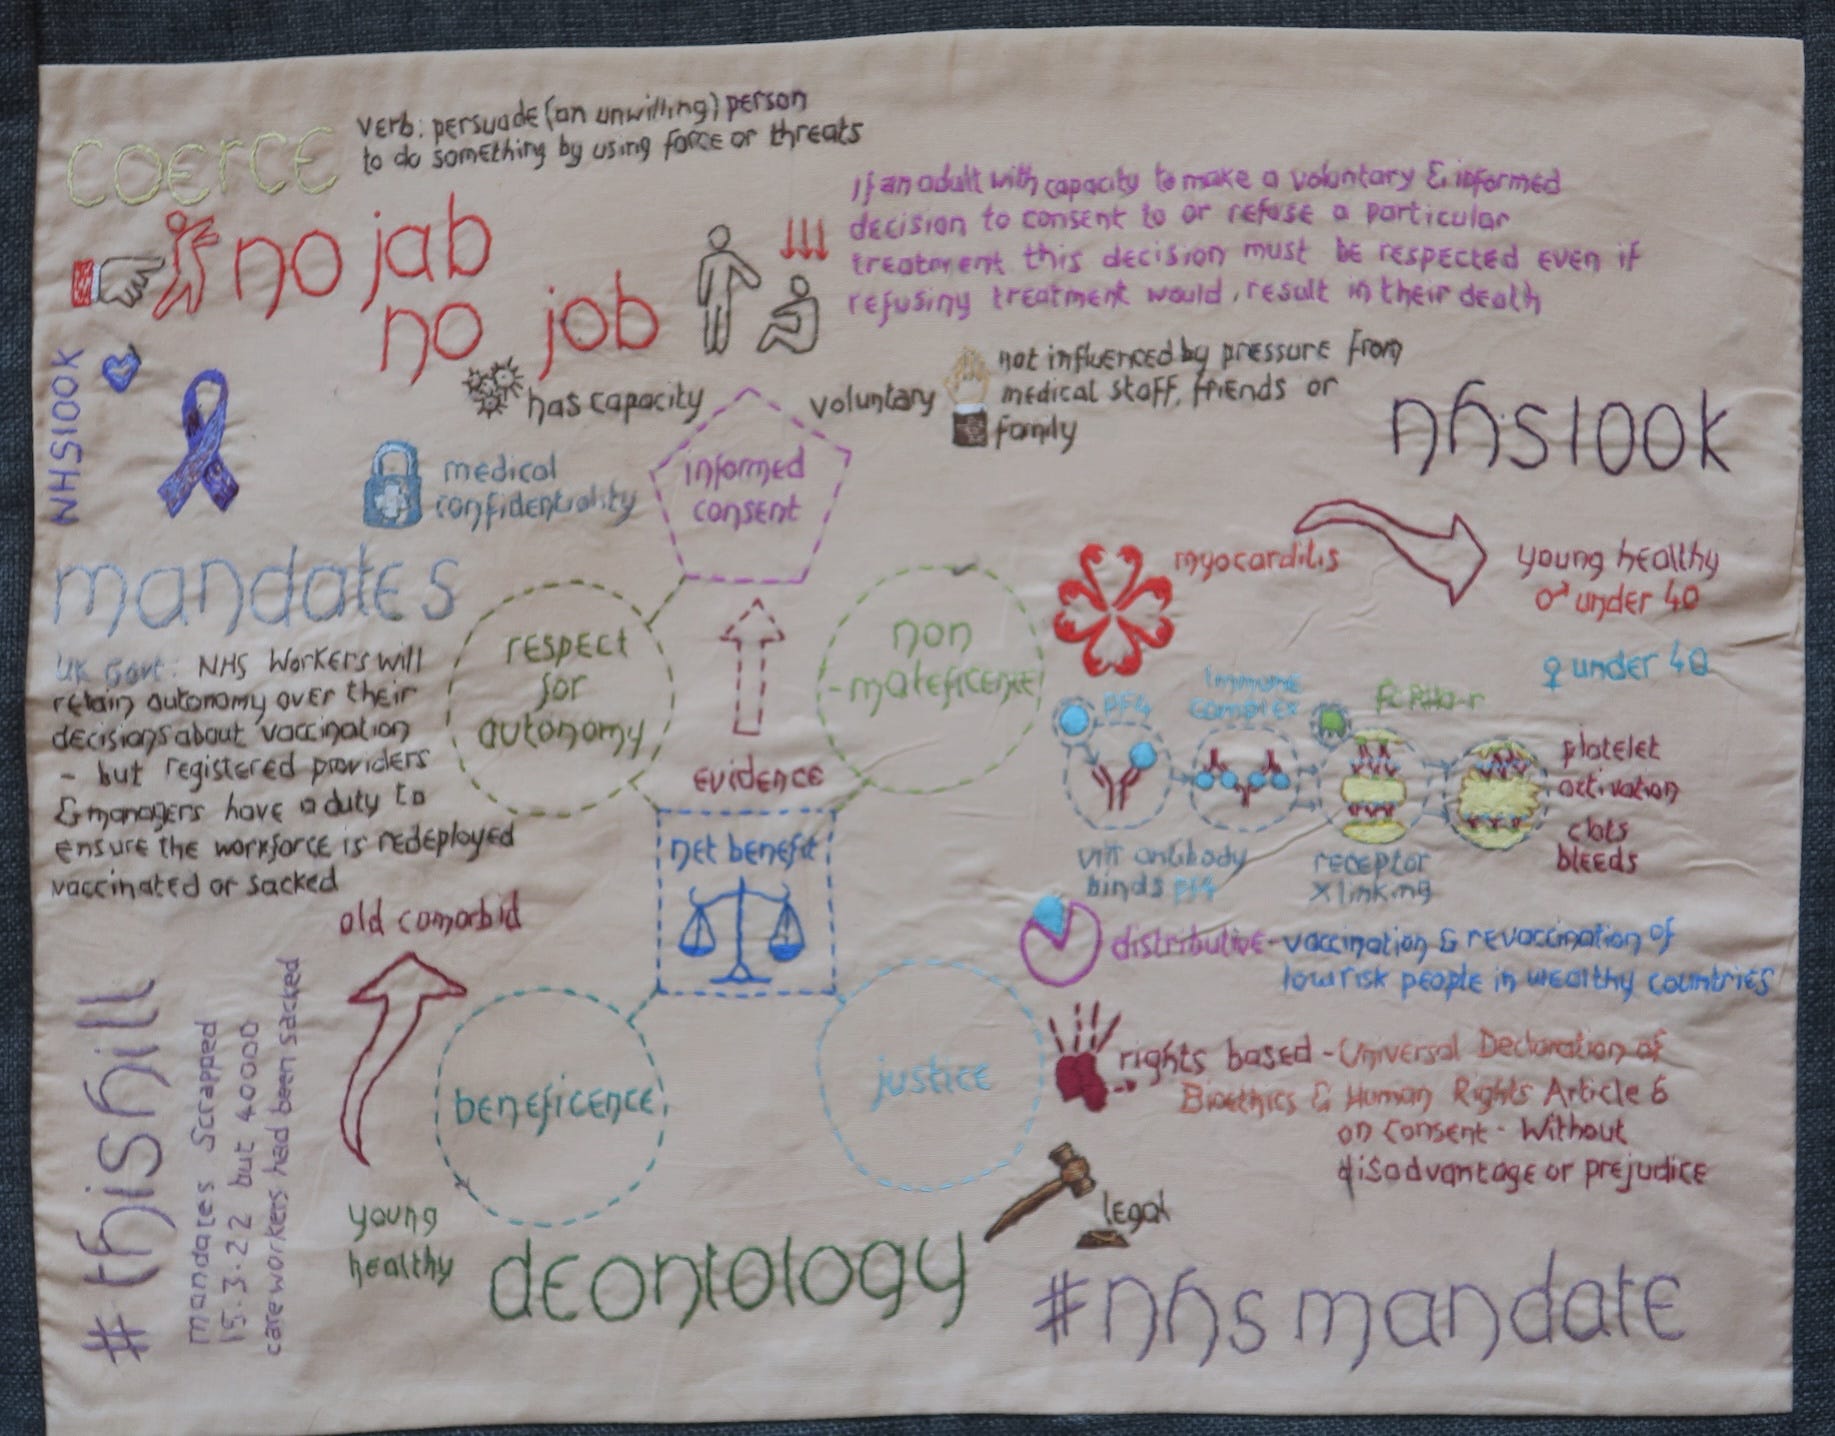 coerce
verb: persuade (an unwilling) person
to do something by using force or threats
no jab
no job
If an adult with capacity to make a voluntary & informed
decision to consent to or refuse a particular
treatment this decision must be respected even if
refusing treatment would, result in their death
NHS100K
has capacity
voluntary
not influenced by pressure from
medical staff, friends or
family
nhs100k
medical
confidentiality
informed
consent
mandates
UK Govt: NHS Workers will
retain autonomy over their
decisions about vaccination
- but registered providers
& managers have a duty to
ensure the workforce is redeployed
vaccinated or sacked
respect
for
autonomy
evidence
non
-maleficence
myocarditis
young healthy
♂ under 40
♀ under 40
PF4
immune
complex
platelet
activation
clots
bleeds
VITT antibody
binds PF4
receptor
x linking
net benefit
old comorbid
young
healthy
beneficence
justice
distributive - vaccination & revaccination of
low risk people in wealthy countries
rights based - Universal Declaration of
Bioethics & Human Rights Article 6
on consent - Without
disadvantage or prejudice
legal
#thishill
mandates scrapped
15.3.22 but 40000
careworkers had been sacked
deontology
#nhsmandate